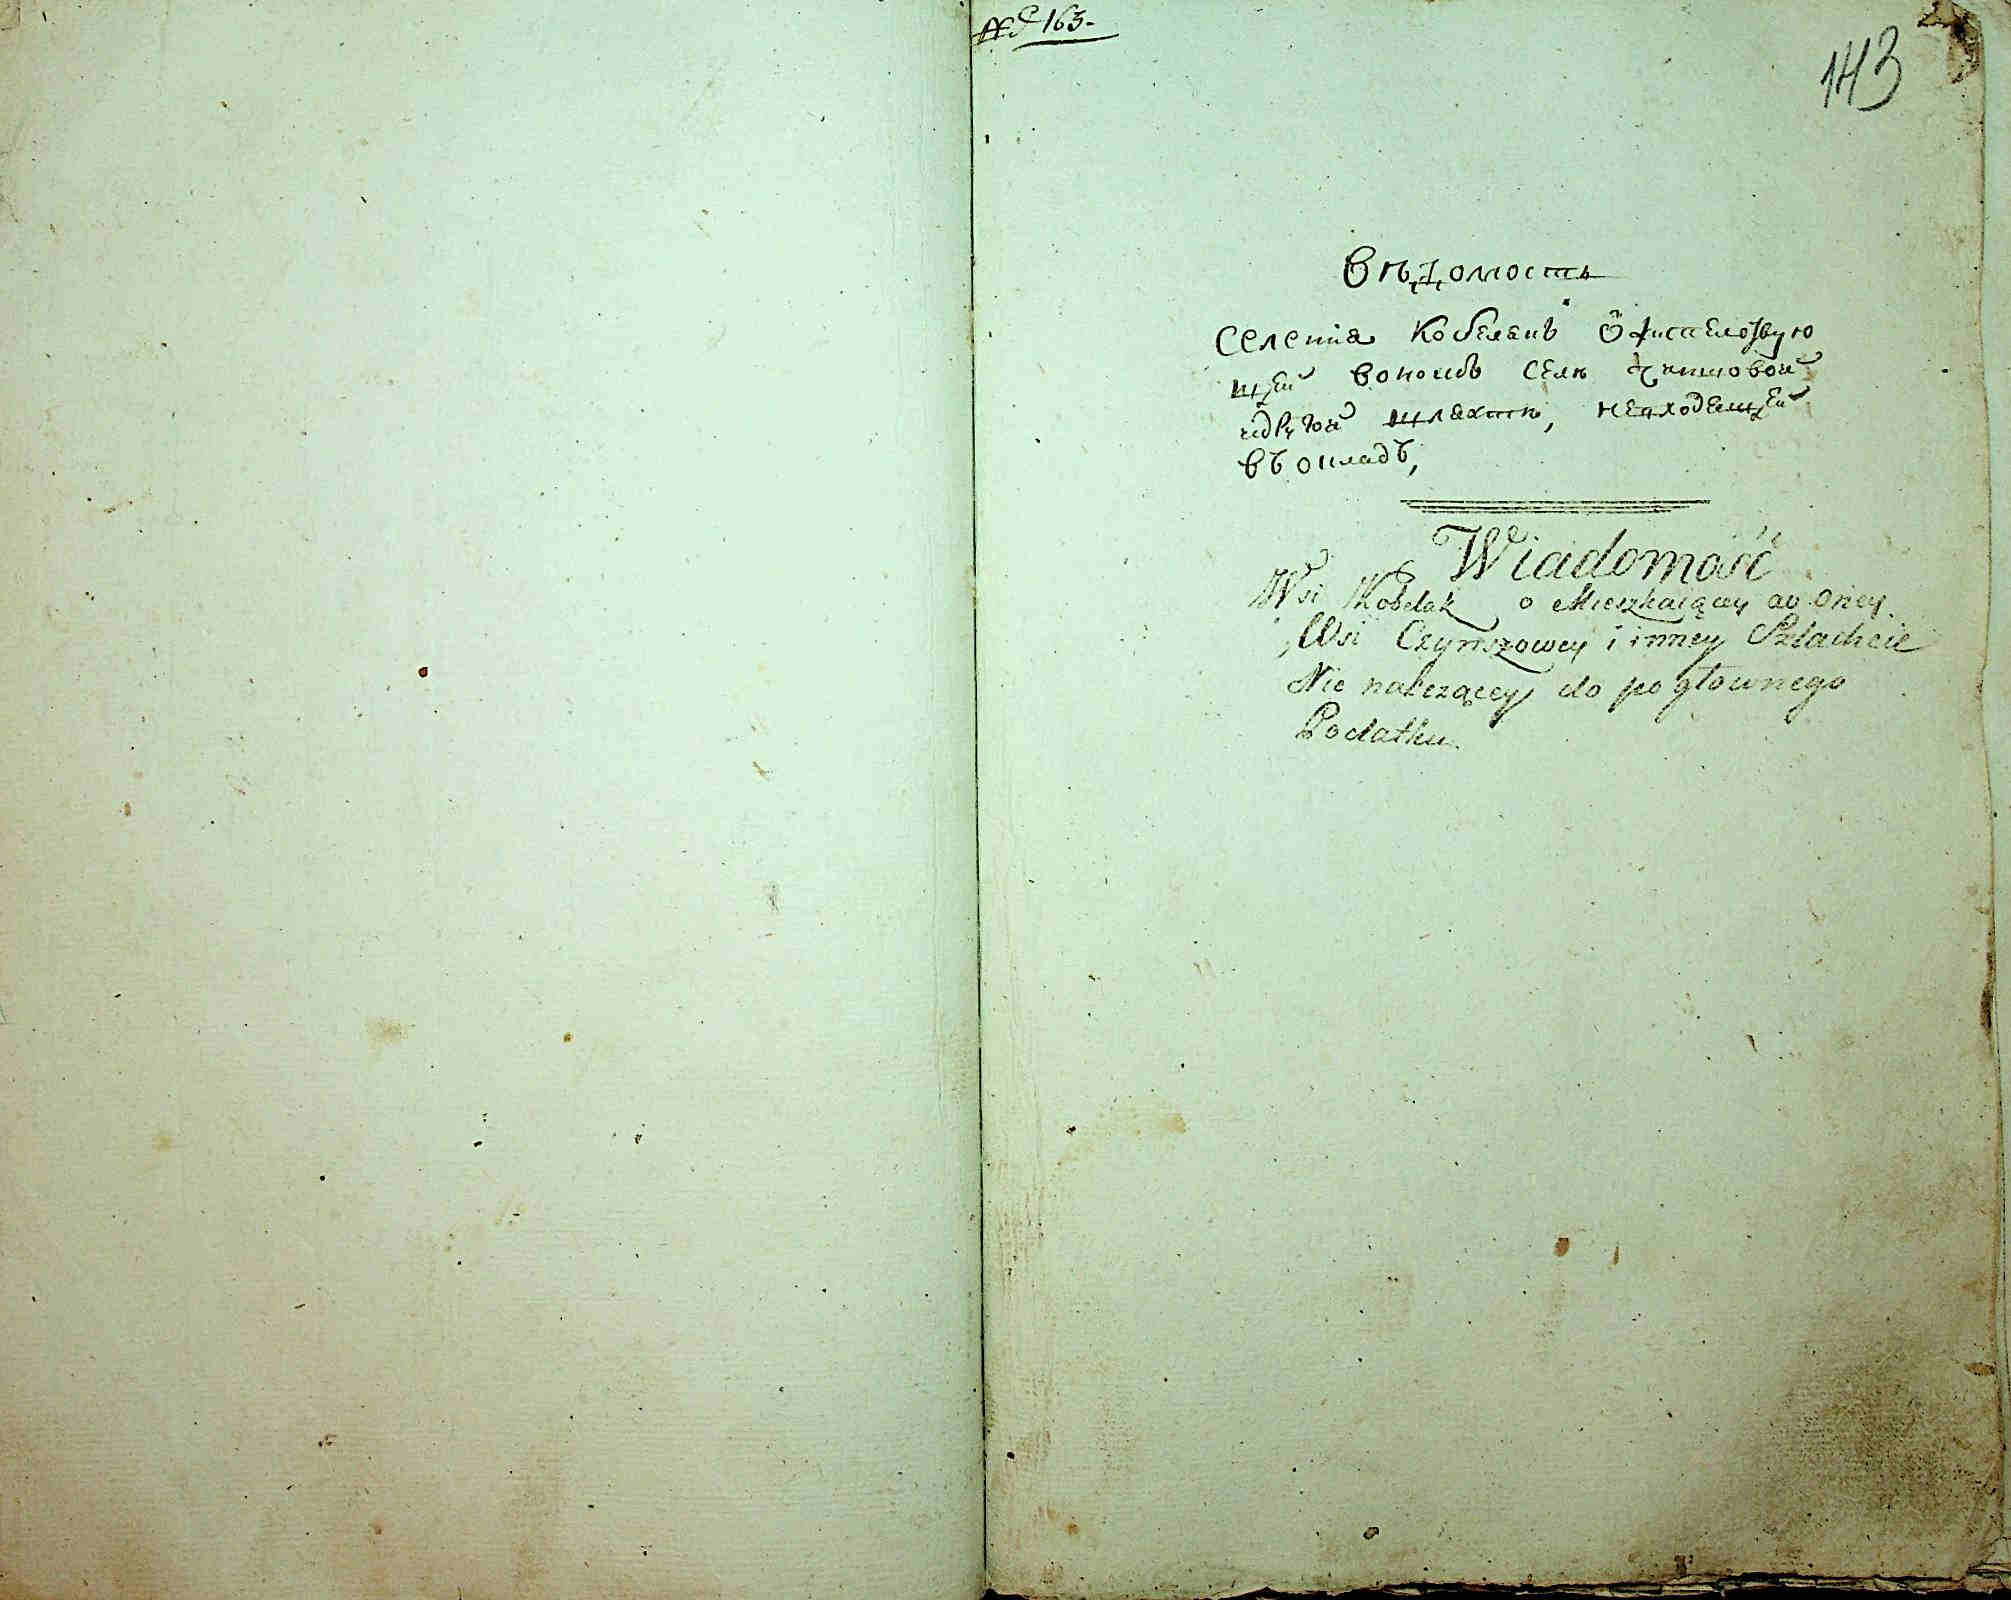 № 163.
143
Вѣдомость
Селения Кобелакъ ö жительствую
щей вономъ селѣ чиншовой
идругой шляхтѣ, невходящей
въ окладъ,
Wiadomość
Wsi Kobelak o Mieszkaiącey w oney
Wsi Czynszowey i inney Szlachcie
Nie należącey do pogłownego
Podatku.